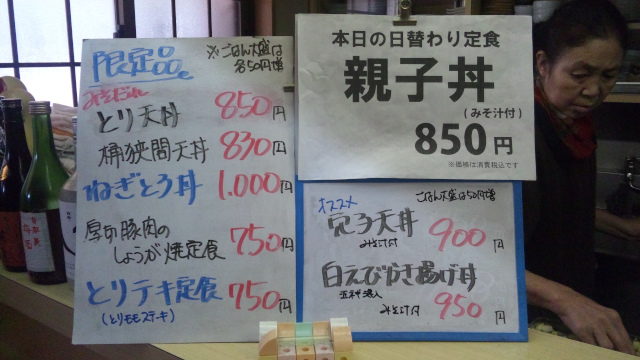 限定品。
※ごはん大盛は
各50円増
みそだれ
とり天丼 850円
桶狭間天丼 830円
ねぎとろ丼 1.000円
厚切豚肉の
しょうが焼定食 750円
とりテキ定食 750円
(とりモモステーキ)
本日の日替わり定食
親子丼
(みそ汁付)
850円
※価格は消費税込です
オススメ
ごはん大盛は50円増
穴子天丼 900円
みそ汁付
白えびかき揚げ丼
みそ汁付 950円